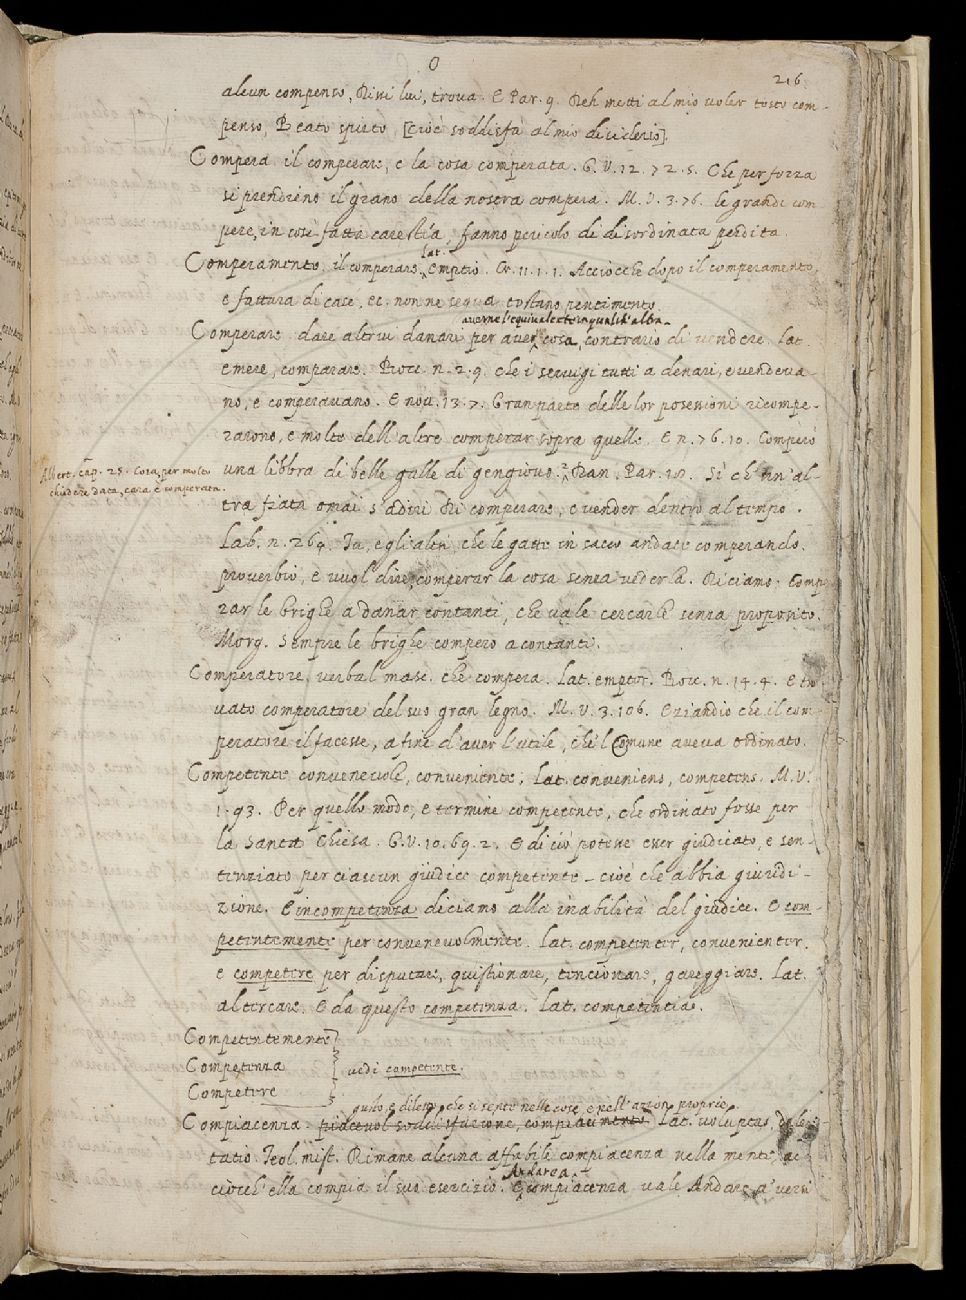 O
216
alcun compenso, Dissi lui, trova. E Par. 9. Deh metti al mio voler tosto com-
penso, Beato spirto, [cioè soddisfa al mio disiderio].
Compera il comperare, e la cosa comperata. G.V. 12. 72. 5. Che per forza
si prendieno il grano della nostra compera. M.V. 3. 76. le grandi com
pere, in cose fatta carestia, fanno pericolo di disordinata perdita.
Comperamento, il comperare. lat. Emptio. Cr. 11. 1. 1. Acciocchè dopo il comperamento,
e fattura di case, ec. non ne segua tostano pentimento
Comperare dare altrui danari per aver averne l'equivalente in qualch'altra cosa, contrario di vendere. Lat.
emere, comparare. Bocc. n. 2. 9. che i servigi tutti a denari, e vendeva
no, e comperavano. E nov. 13. 7. Gran parte delle lor possessioni ricompe-
rarono, e molte dell'altre comperar sopra quelle. E n. 76. 10. Comperò
Albert. cap. 25. Cosa, per molto
chiedere data, cara è comperata.
una libbra di belle galle di gengiovo. Dan. Par. 16. Sì ch'un'al-
tra fiata omai s'adiri Del comperare, e vender dentro al templo.
Lab. n. 269. Tu, e gli altri, che le gatte in sacco andate comperando.
proverbio, e vuol dire, comperar la cosa senza vederla. Diciamo. Compe
rar le brighe a danar contanti, che vale cercarle senza proposito.
Morg. Sempre le brighe compero a contanti.
Comperatore. verbal masc. che compera. Lat. emptor. Bocc. n. 14. 4. E tro
vato comperatore del suo gran legno. M.V. 3. 106. Eziandio che il com-
peratore il facesse, a fine d'aver l'utile, che'l Comune aveva ordinato.
Competente convenevole, conveniente; Lat. conveniens, competens. M.V.
1. 93. Per quello modo, e termine competente, che ordinato fosse per
la Santa Chiesa. G.V. 10. 69. 2. E di ciò potesse esser giudicato, e sen-
tenziato per ciascun giudice competente - cioè che abbia giuridi-
zione. E incompetenza diciamo alla inabilità del giudice. E com-
petentemente per convenevolmente. Lat. competenter, convenienter.
e competere per disputare, quistionare, tencionare, gareggiare. Lat.
altercare. E da questo competenza. Lat. competentia.
Competentemente
Competenza
Competere
vedi competente.
gusto, e diletto, che si sente nelle cose, e nell'azzion proprie.
Compiacenza. piacevol soddisfazione, compiacimento Lat. voluptas, delec
tatio. Teol. mist. Rimane alcuna affabile compiacenza nella mente, ac
ciocch'ella compia il suo esercizio. E Andar a compiacenza vale Andare a' versi